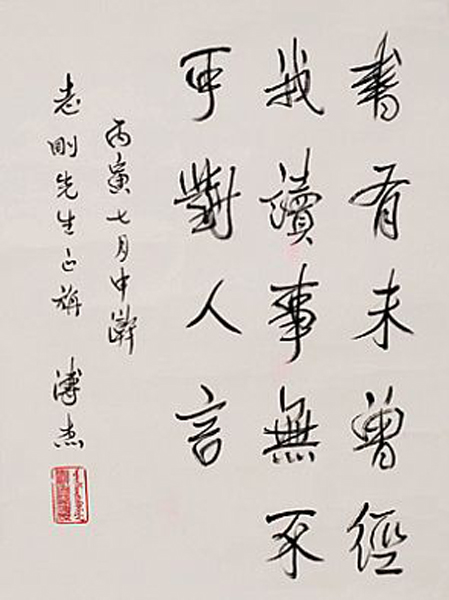 書有未曾經
我讀事無不
可對人言
丙寅七月中澣
志剛先生正腕
溥杰